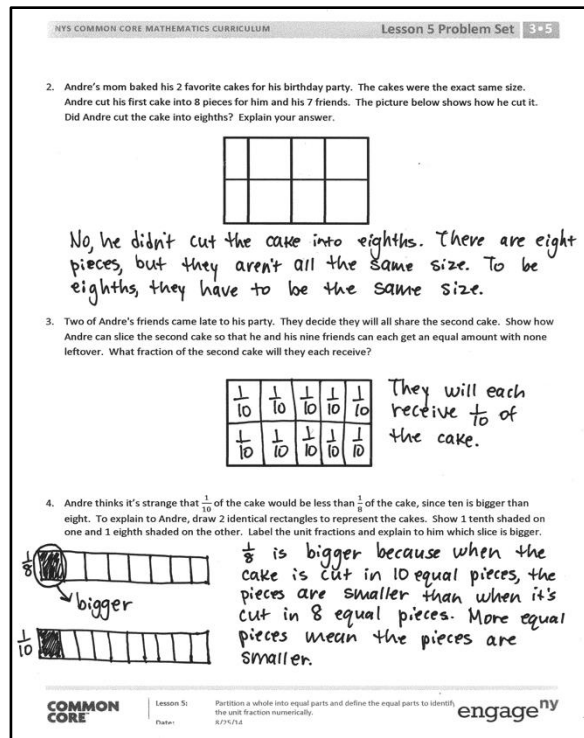 NYS COMMON CORE MATHEMATICS CURRICULUM
Lesson 5 Problem Set 3•5
2. Andre's mom baked his 2 favorite cakes for his birthday party. The cakes were the exact same size.
Andre cut his first cake into 8 pieces for him and his 7 friends. The picture below shows how he cut it.
Did Andre cut the cake into eighths? Explain your answer.
No, he didn't cut the cake into eighths. There are eight
pieces, but they aren't all the same size. To be
eighths, they have to be the same size.
3. Two of Andre's friends came late to his party. They decide they will all share the second cake. Show how
Andre can slice the second cake so that he and his nine friends can each get an equal amount with none
leftover. What fraction of the second cake will they each receive?
1/10 1/10 1/10 1/10 1/10
1/10 1/10 1/10 1/10 1/10
They will each
receive 1/10 of
the cake.
4. Andre thinks it's strange that 1/10 of the cake would be less than 1/8 of the cake, since ten is bigger than
eight. To explain to Andre, draw 2 identical rectangles to represent the cakes. Show 1 tenth shaded on
one and 1 eighth shaded on the other. Label the unit fractions and explain to him which slice is bigger.
1/8
bigger
1/10
1/8 is bigger because when the
cake is cut in 10 equal pieces, the
pieces are smaller than when it's
cut in 8 equal pieces. More equal
pieces mean the pieces are
smaller.
COMMON
CORE
Lesson 5:
Partition a whole into equal parts and define the equal parts to identify
the unit fraction numerically.
Date:
8/25/14
engage ny